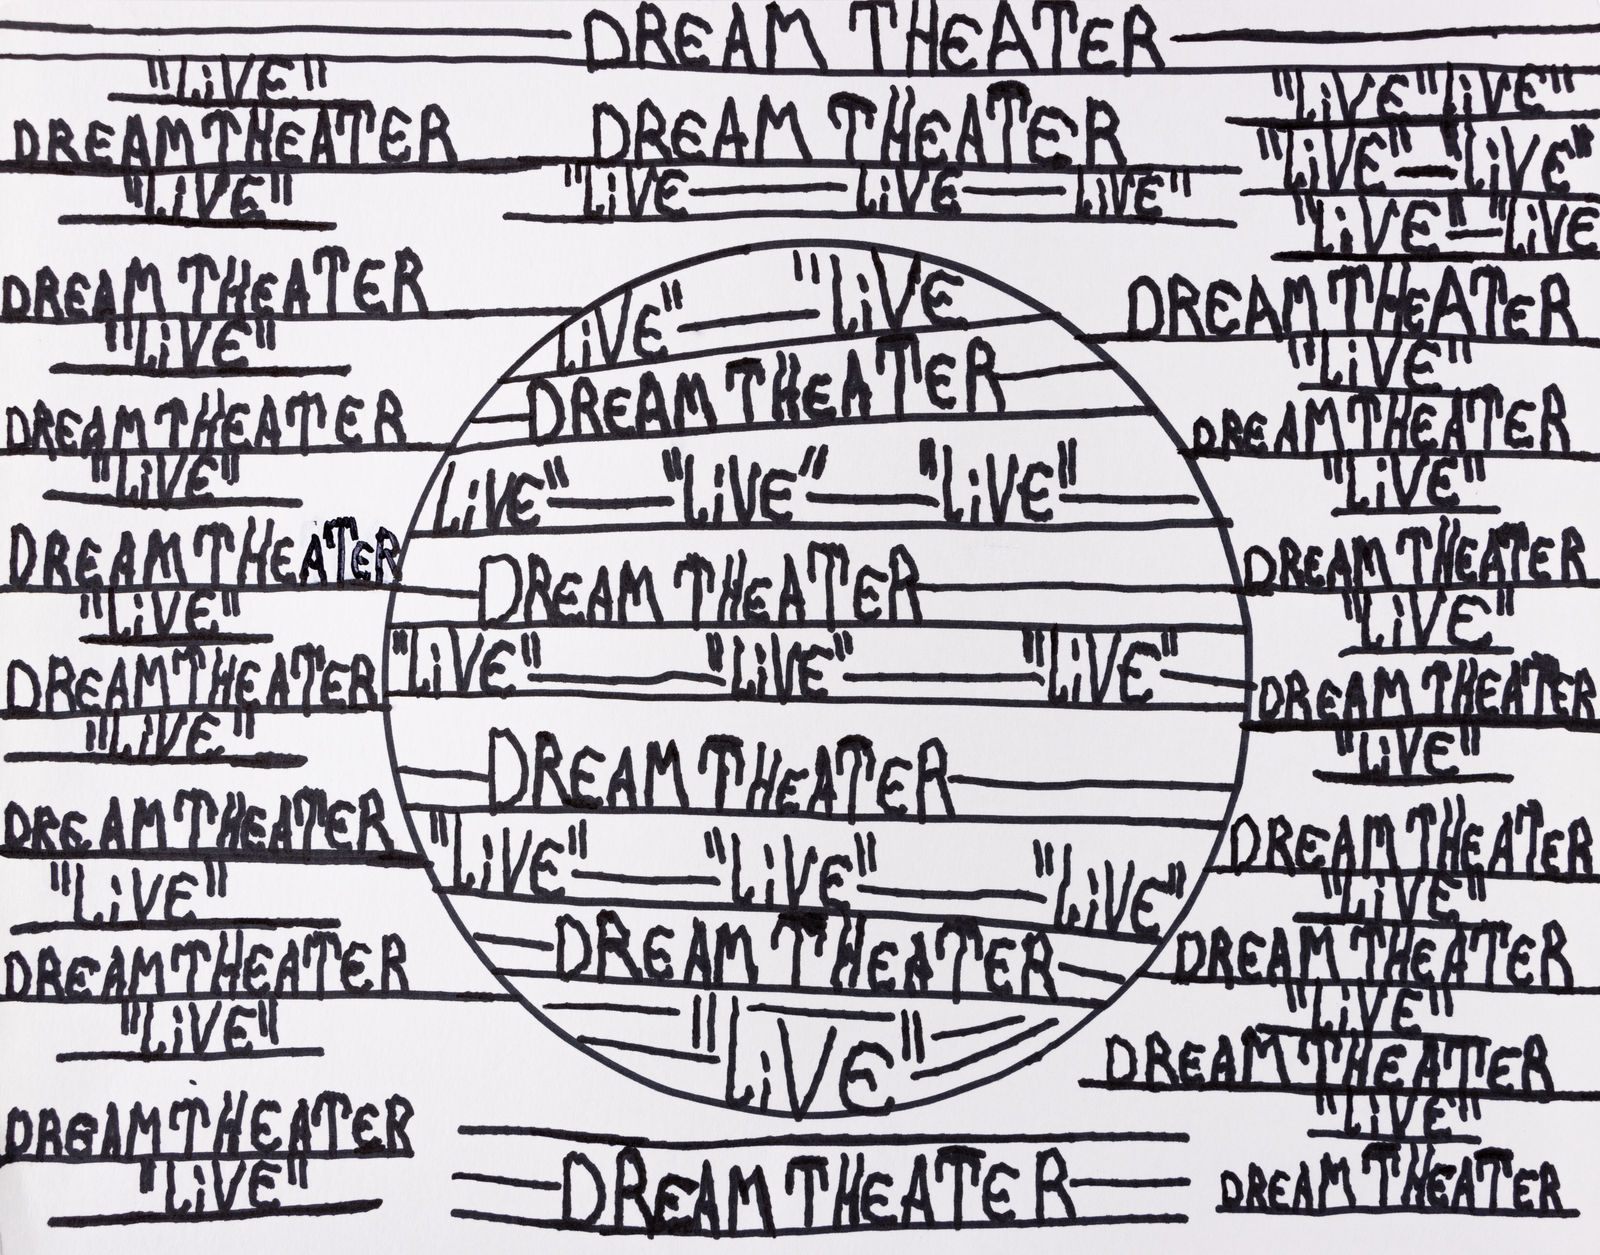 DREAM THEATER
"LiVE"
DREAM THEATER
"LiVE"
DREAM THEATER
"LiVE"
DREAM THEATER
"LiVE"
DREAM THEATER
"LiVE"
DREAM THEATER
"LiVE"
DREAM THEATER
"LiVE"
DREAM THEATER
"LiVE"
DREAM THEATER
"LiVE"
DREAM THEATER
"LiVE — LiVE — LiVE"
LiVE" — "LiVE
DREAM THEATER
LiVE" — "LiVE" — "LiVE"
DREAM THEATER
"LiVE" — "LiVE" — "LiVE"
DREAM THEATER
"LiVE" — "LiVE" — "LiVE"
DREAM THEATER
"LiVE"
DREAM THEATER
"LiVE" LiVE"
"LiVE" — "LiVE"
"LiVE" — "LiVE
DREAM THEATER
"LiVE"
DREAM THEATER
"LiVE"
DREAM THEATER
"LiVE"
DREAM THEATER
"LiVE"
DREAM THEATER
"LiVE"
DREAM THEATER
"LiVE"
DREAM THEATER
"LiVE"
DREAM THEATER